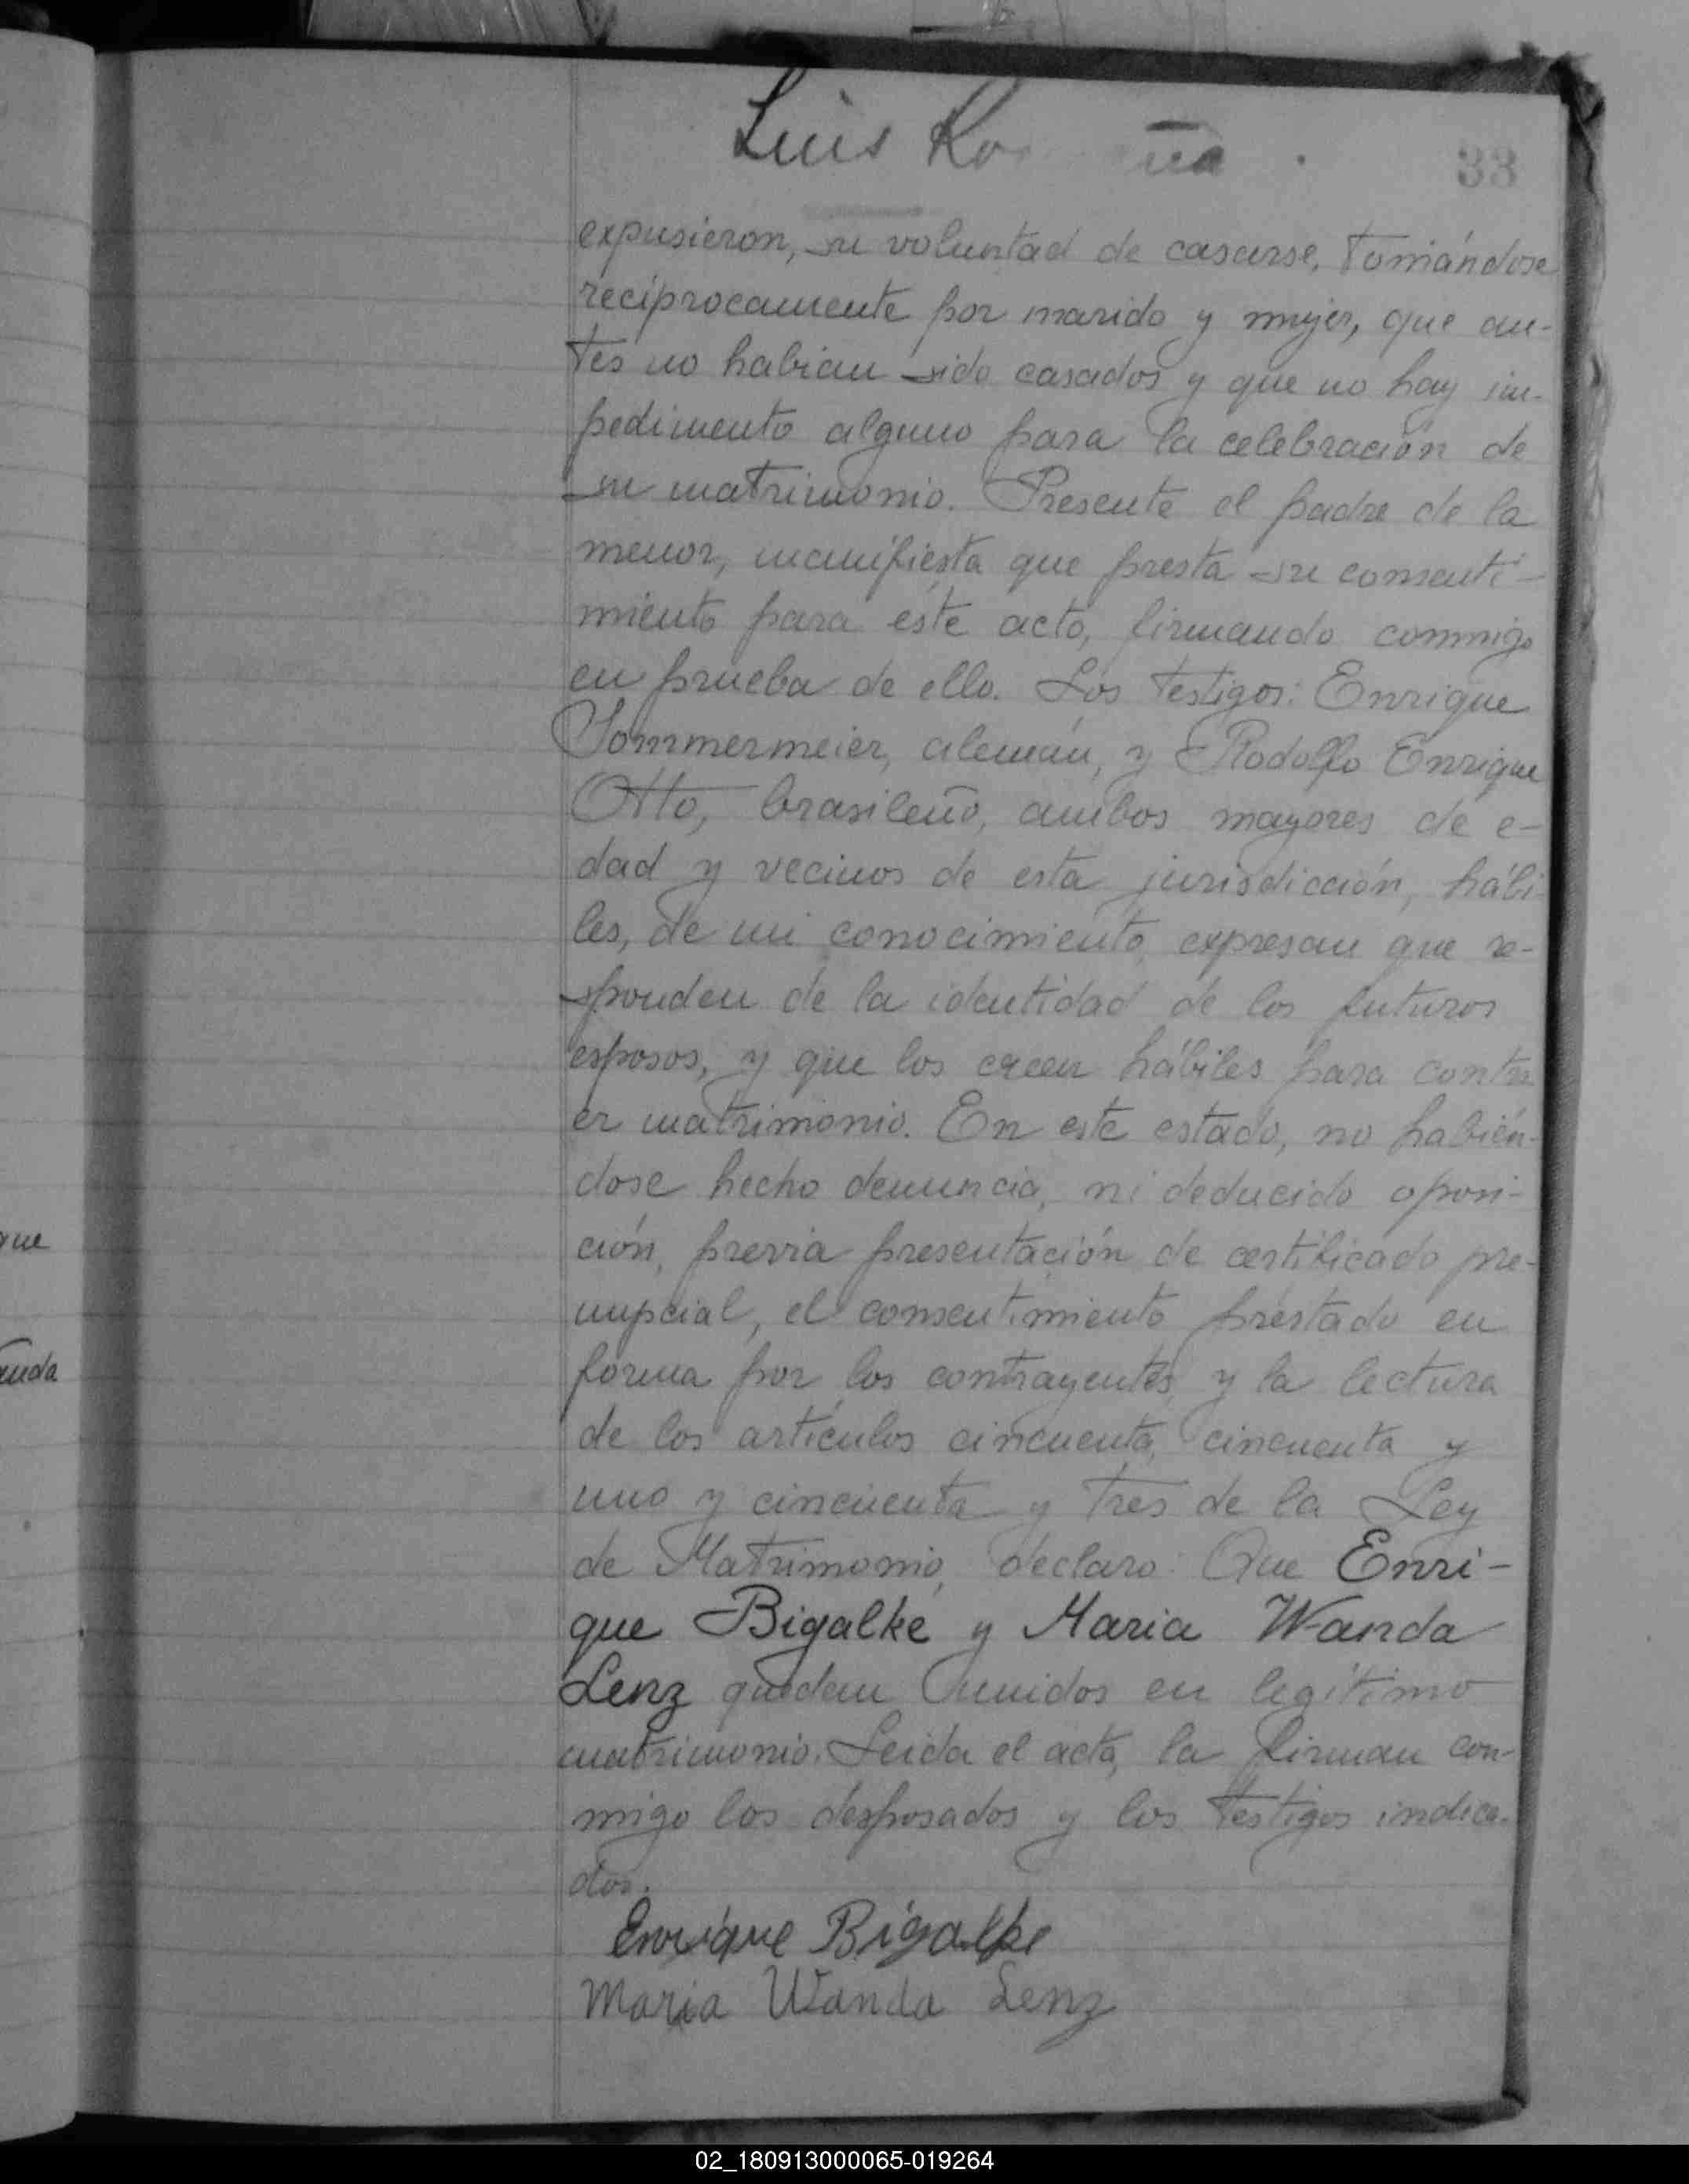 Luis
33
expusieron, su voluntad de casarse, tomándose
recíprocamente por marido y mujer, que an-
tes no habian sido casados y que no hay im-
pedimento alguno para la celebración de
su matrimonio. Presente el padre de la
menor, manifiesta que presta su consenti-
miento para este acto, firmando conmigo
en prueba de ello. Los testigos: Enrique
Sommermeier, alemán, y Rodolfo Enrique
Otto, brasileño, ambos mayores de e-
dad y vecinos de esta jurisdicción, hábi-
les, de mi conocimiento, expresan que re-
sponden de la identidad de los futuros
esposos, y que los creen hábiles para contra
er matrimonio. En este estado, no habién-
dose hecho denuncia, ni deducido oposi-
ción, previa presentación de certificado pre-
nupcial, el consentimiento prestado en
forma por los contrayentes, y la lectura
de los artículos cincuenta, cincuenta y
uno y cincuenta y tres de la Ley
de Matrimonio, declaro: Que Enri-
que Bigalke y Maria Wanda
Lenz quedan unidos en legítimo
matrimonio. Leida el acta, la firman con-
migo los desposados y los testigos indica-
dos.
Enrique Bigalke
Maria Wanda Lenz
que
anda
02_180913000065-019264